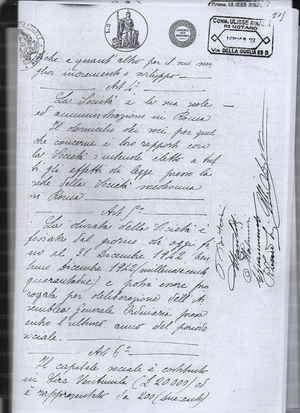 COMM. ULISSE
NOTARO
VIA DELLA GUGLIA 69 B
che e quant'altro per il suo mi-
glior incremento e sviluppo
Art. 4°
La Società à la sua sede
ed amministrazione in Roma
Il domicilio dei soci per quel
che concerne i loro rapporti con
la Società s'intende eletto a tut-
ti gli effetti di legge presso la
sede della Società medesima
in Roma
Art. 5°
La durata della Società è
fissata dal giorno di oggi fi-
no al 31 Dicembre 1942 (tren-
tuno dicembre 1942 millenovecento
quarantadue) e potrà essere pro-
rogata per deliberazione dell'As-
semblea Generale Ordinaria presa
entro l'ultimo anno del periodo
sociale.
Art. 6°
Il capitale sociale è costituito
in Lire Ventimila (£ 20000) ed
è rappresentato da 200 (duecento)